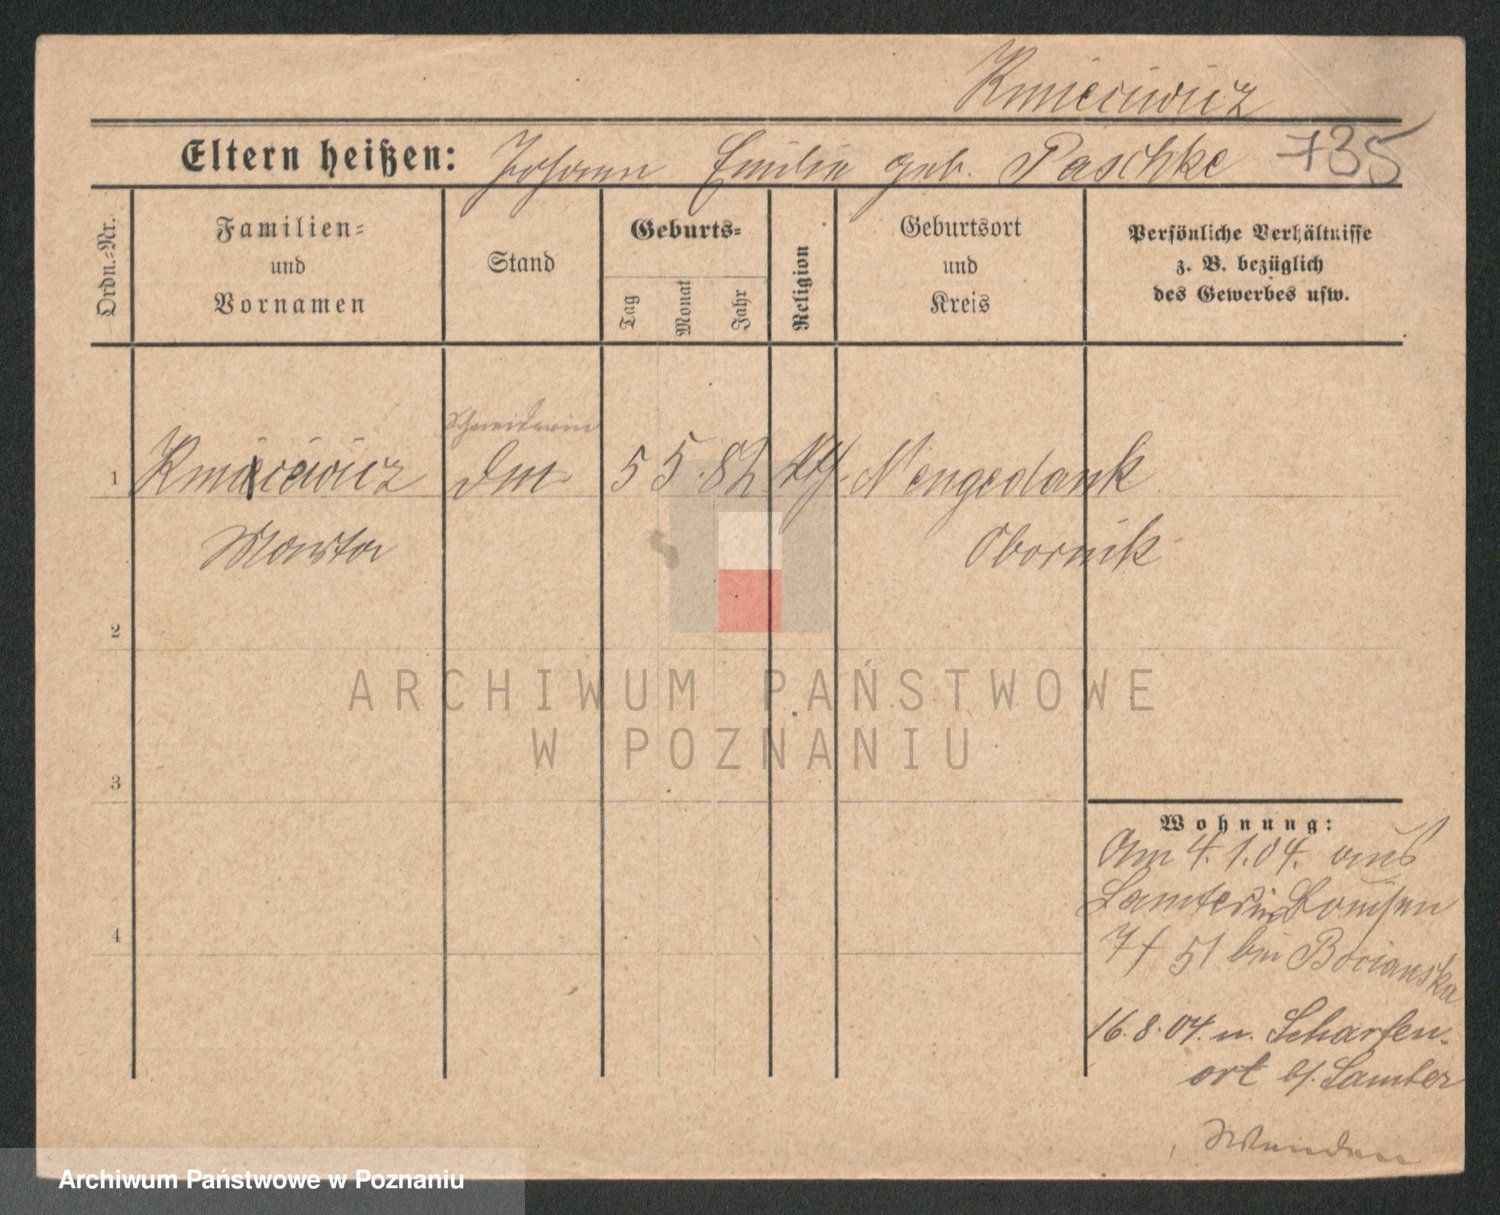 Kmieciwicz
Eltern heißen: Johann Emilie geb. Paschke 735
Ordn.-Nr.
Familien-
und
Vornamen
Stand
Geburts-
Tag
Monat
Jahr
Religion
Geburtsort
und
Kreis
Persönliche Verhältnisse
z. B. bezüglich
des Gewerbes usw.
Schneiderin
1 Kmieciwicz 5 5. 82. Neugedank
Marta Obornik
2
3
4
Wohnung:
Am 4. 1. 04. aus
Samter in Louisen
51 bei Bocianska
16. 8. 04. n. Scharfen-
ort b/. Samter
Wenden
ARCHIWUM PAŃSTWOWE
W POZNANIU
Archiwum Państwowe w Poznaniu